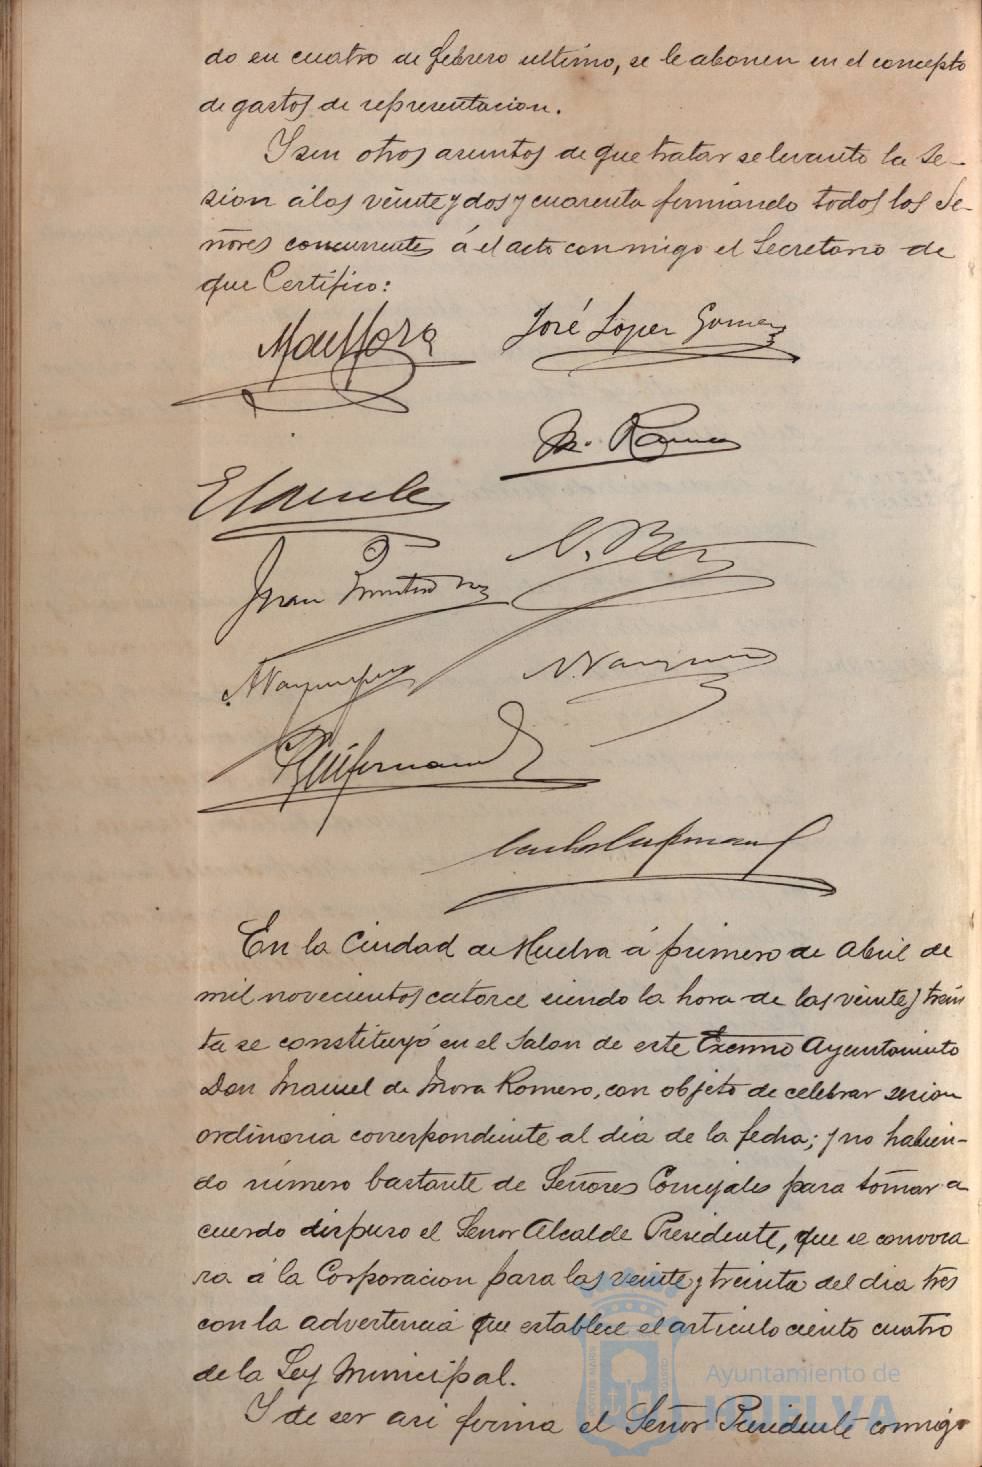 do en cuatro de febrero ultimo, se le abonen en el concepto
de gastos de representacion.
Y sin otros asuntos de que tratar se levanto la Se-
sion á las veinte y dos y cuarenta firmando todos los Se-
ñores concurrentes á el acto conmigo el Secretario de
que Certifico:
José López Gomez
En la Ciudad de Huelva á primero de Abril de
mil novecientos catorce siendo la hora de las veinte y trein
ta se constituyó en el Salon de este Excmo Ayuntamiento
Don Manuel de Mora Romero, con objeto de celebrar sesion
ordinaria correspondiente al dia de la fecha; y no habien-
do número bastante de Señores Concejales para tomar a
cuerdo dispuso el Señor Alcalde Presidente, que se convoca
ra á la Corporacion para las veinte y treinta del dia tres
con la advertencia que establece el articulo ciento cuatro
de la Ley Municipal.
Y de ser asi firma el Señor Presidente conmigo
Ayuntamiento de
HUELVA